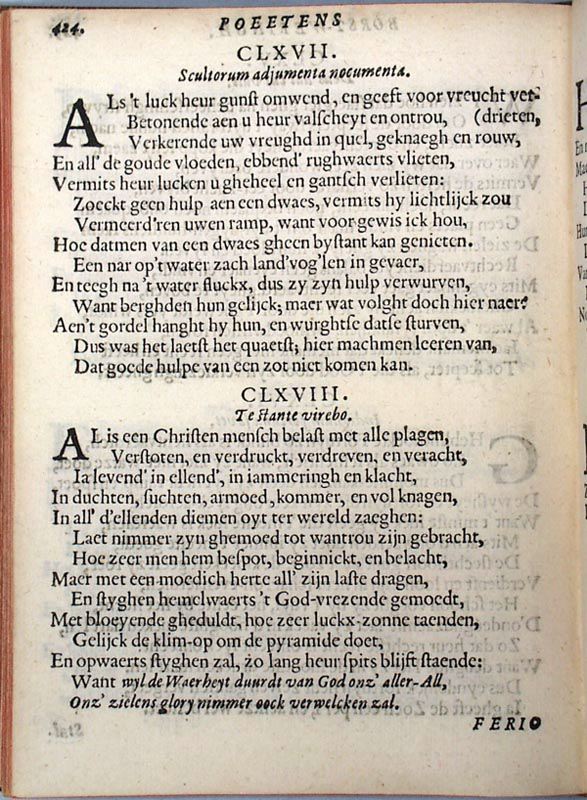 424. POEETENS
CLXVII.
Scultorum adjumenta nocumenta.
ALs 't luck heur gunst omwend, en geeft voor vreucht ver-
Betonende aen u heur valscheyt en ontrou, (drieten,
Verkerende uw vreughd in quel, geknaegh en rouw,
En all' de goude vloeden, ebbend' rughwaerts vlieten,
Vermits heur lucken u gheheel en gantsch verlieten:
Zoeckt geen hulp aen een dwaes, vermits hy lichtlijck zou
Vermeerd'ren uwen ramp, want voor gewis ick hou,
Hoe datmen van een dwaes gheen bystant kan genieten.
Een nar op't water zach land'vog'len in gevaer,
En teegh na 't water fluckx, dus zy zyn hulp verwurven,
Want berghden hun gelijck; maer wat volght doch hier naer?
Aen't gordel hanght hy hun, en wurghtse datse sturven,
Dus was het laetst het quaetst; hier machmen leeren van,
Dat goede hulpe van een zot niet komen kan.
CLXVIII.
Te stante virebo.
AL is een Christen mensch belast met alle plagen,
Verstoten, en verdruckt, verdreven, en veracht,
Ia levend' in ellend', in iammeringh en klacht,
In duchten, suchten, armoed, kommer, en vol knagen,
In all' d'ellenden diemen oyt ter wereld zaeghen:
Laet nimmer zyn ghemoed tot wantrou zijn gebracht,
Hoe zeer men hem bespot, beginnickt, en belacht,
Maer met een moedich herte all' zijn laste dragen,
En styghen hemelwaerts 't God-vrezende gemoedt,
Met bloeyende gheduldt, hoe zeer luckx-zonne taenden,
Gelijck de klim-op om de pyramide doet,
En opwaerts styghen zal, zo lang heur spits blijft staende:
Want wyl de Waerheyt duurdt van God onz' aller-All,
Onz' zielens glory nimmer oock verwelcken zal.
FERIO